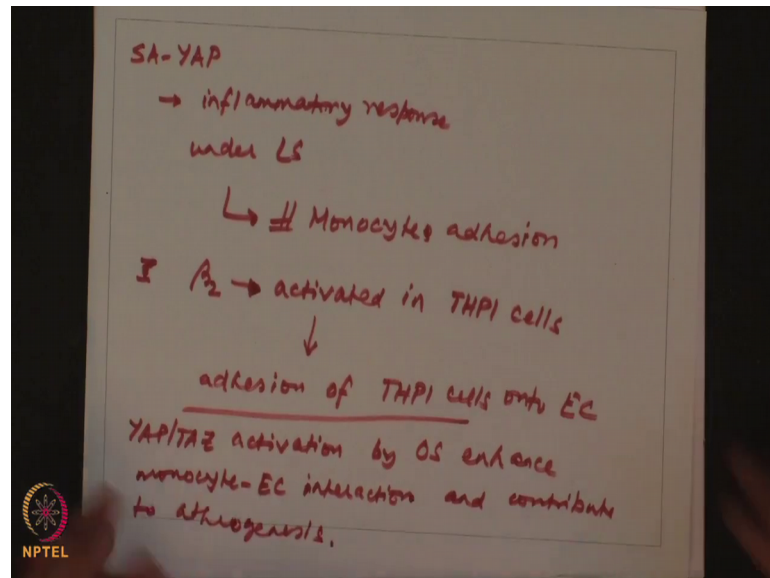 SA-YAP
→ inflammatory response
under LS
↳ # Monocyte adhesion
I β2 → activated in THP1 cells
↓
adhesion of THP1 cells onto EC
YAP/TAZ activation by OS enhance
monocyte-EC interaction and contribute
to atherogenesis.
NPTEL